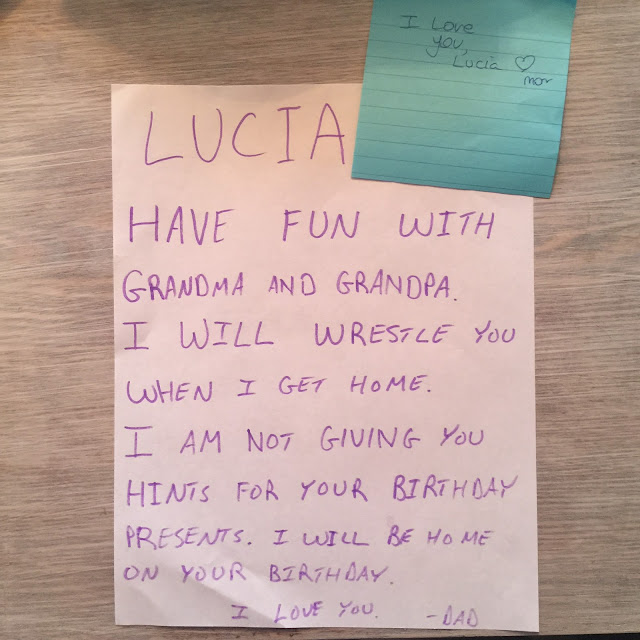 I Love
you,
Lucia ♡
mor
LUCIA
HAVE FUN WITH
GRANDMA AND GRANDPA.
I WILL WRESTLE YOU
WHEN I GET HOME.
I AM NOT GIVING YOU
HINTS FOR YOUR BIRTHDAY
PRESENTS. I WILL BE HOME
ON YOUR BIRTHDAY.
I LOVE YOU. -DAD